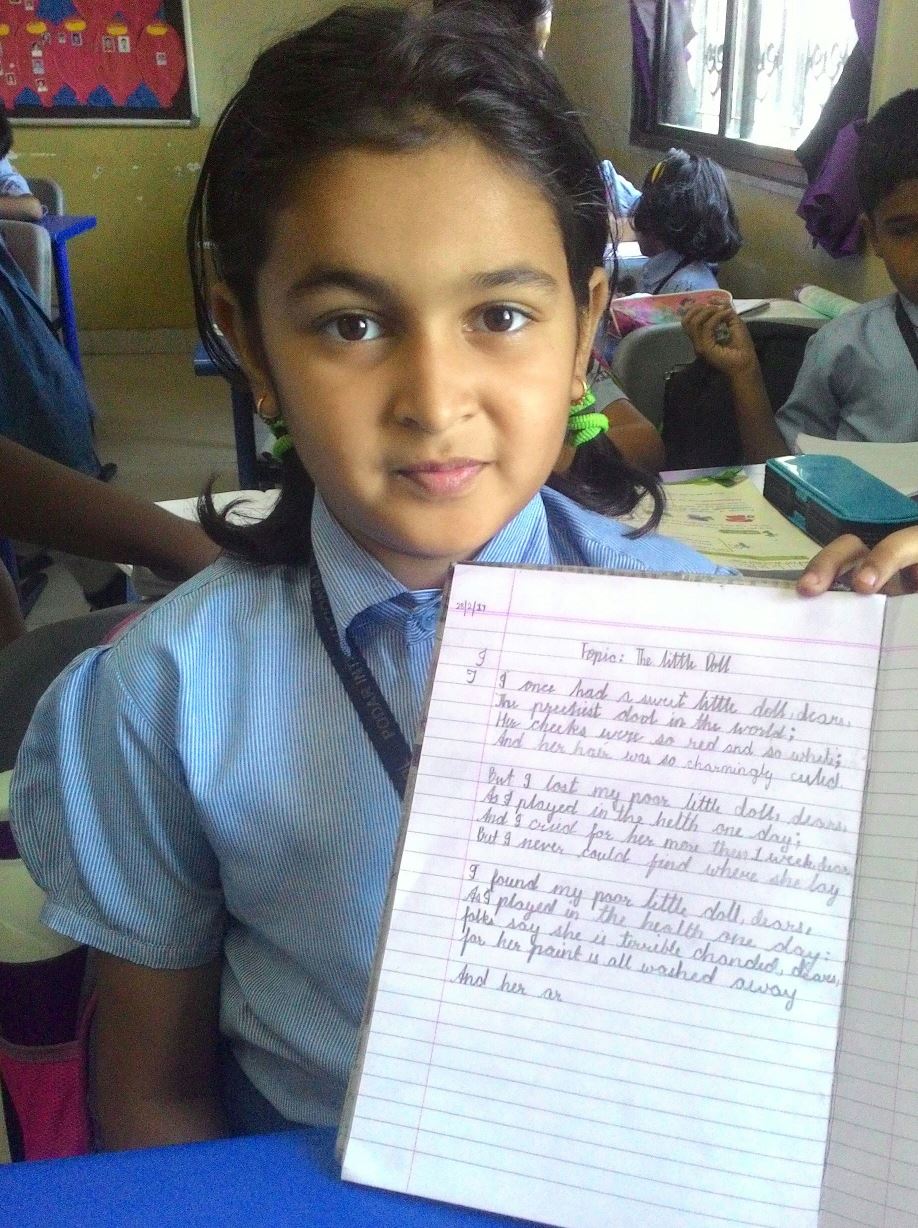 28/2/17
Topic: The little Doll
I
I I once had a sweet little doll, dears,
The prettiest dool in the world;
Her cheeks were so red and so white;
And her hair was so charmingly culed.
But I lost my poor little doll, dears,
As I played in the helth one day;
And I cried for her more then 1 week, dears
But I never could find where she lay
I found my poor little doll, dears,
As I played in the health one day:
folks say she is terrible chanded, dears,
for her paint is all washed away
And her ar
PODAR INT